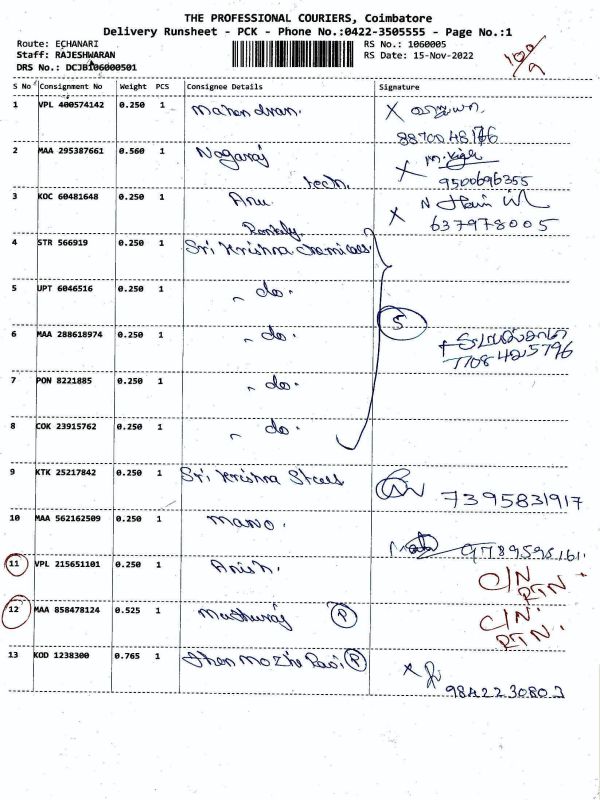 THE PROFESSIONAL COURIERS, Coimbatore
Delivery Runsheet - PCK - Phone No.:0422-3505555 - Page No.:1
Route: ECHANARI RS No.: 1060005
Staff: RAJESHWARAN RS Date: 15-Nov-2022
DRS No.: DCJB106000501
S No Consignment No Weight PCS Consignee Details Signature
1 VPL 400574142 0.250 1 Mahendran.
2 MAA 295387661 0.560 1 Nagaraj
tech. 9500696355
3 KOC 60481648 0.250 1 Anu
637978005
4 STR 566919 0.250 1 Sri Krishna Chemicals.
5 UPT 6046516 0.250 1 " do.
5
6 MAA 288618974 0.250 1 " do.
7708425796
7 PON 8221885 0.250 1 " do.
8 COK 23915762 0.250 1 " do.
9 KTK 25217842 0.250 1 Sri Krishna Steels
7395831917
10 MAA 562162509 0.250 1 Mano.
11 VPL 215651101 0.250 1 Anish. C/N
RTN.
12 MAA 858478124 0.525 1 Muthuraj P C/N.
RTN.
13 KOD 1238300 0.765 1 P
9842230803